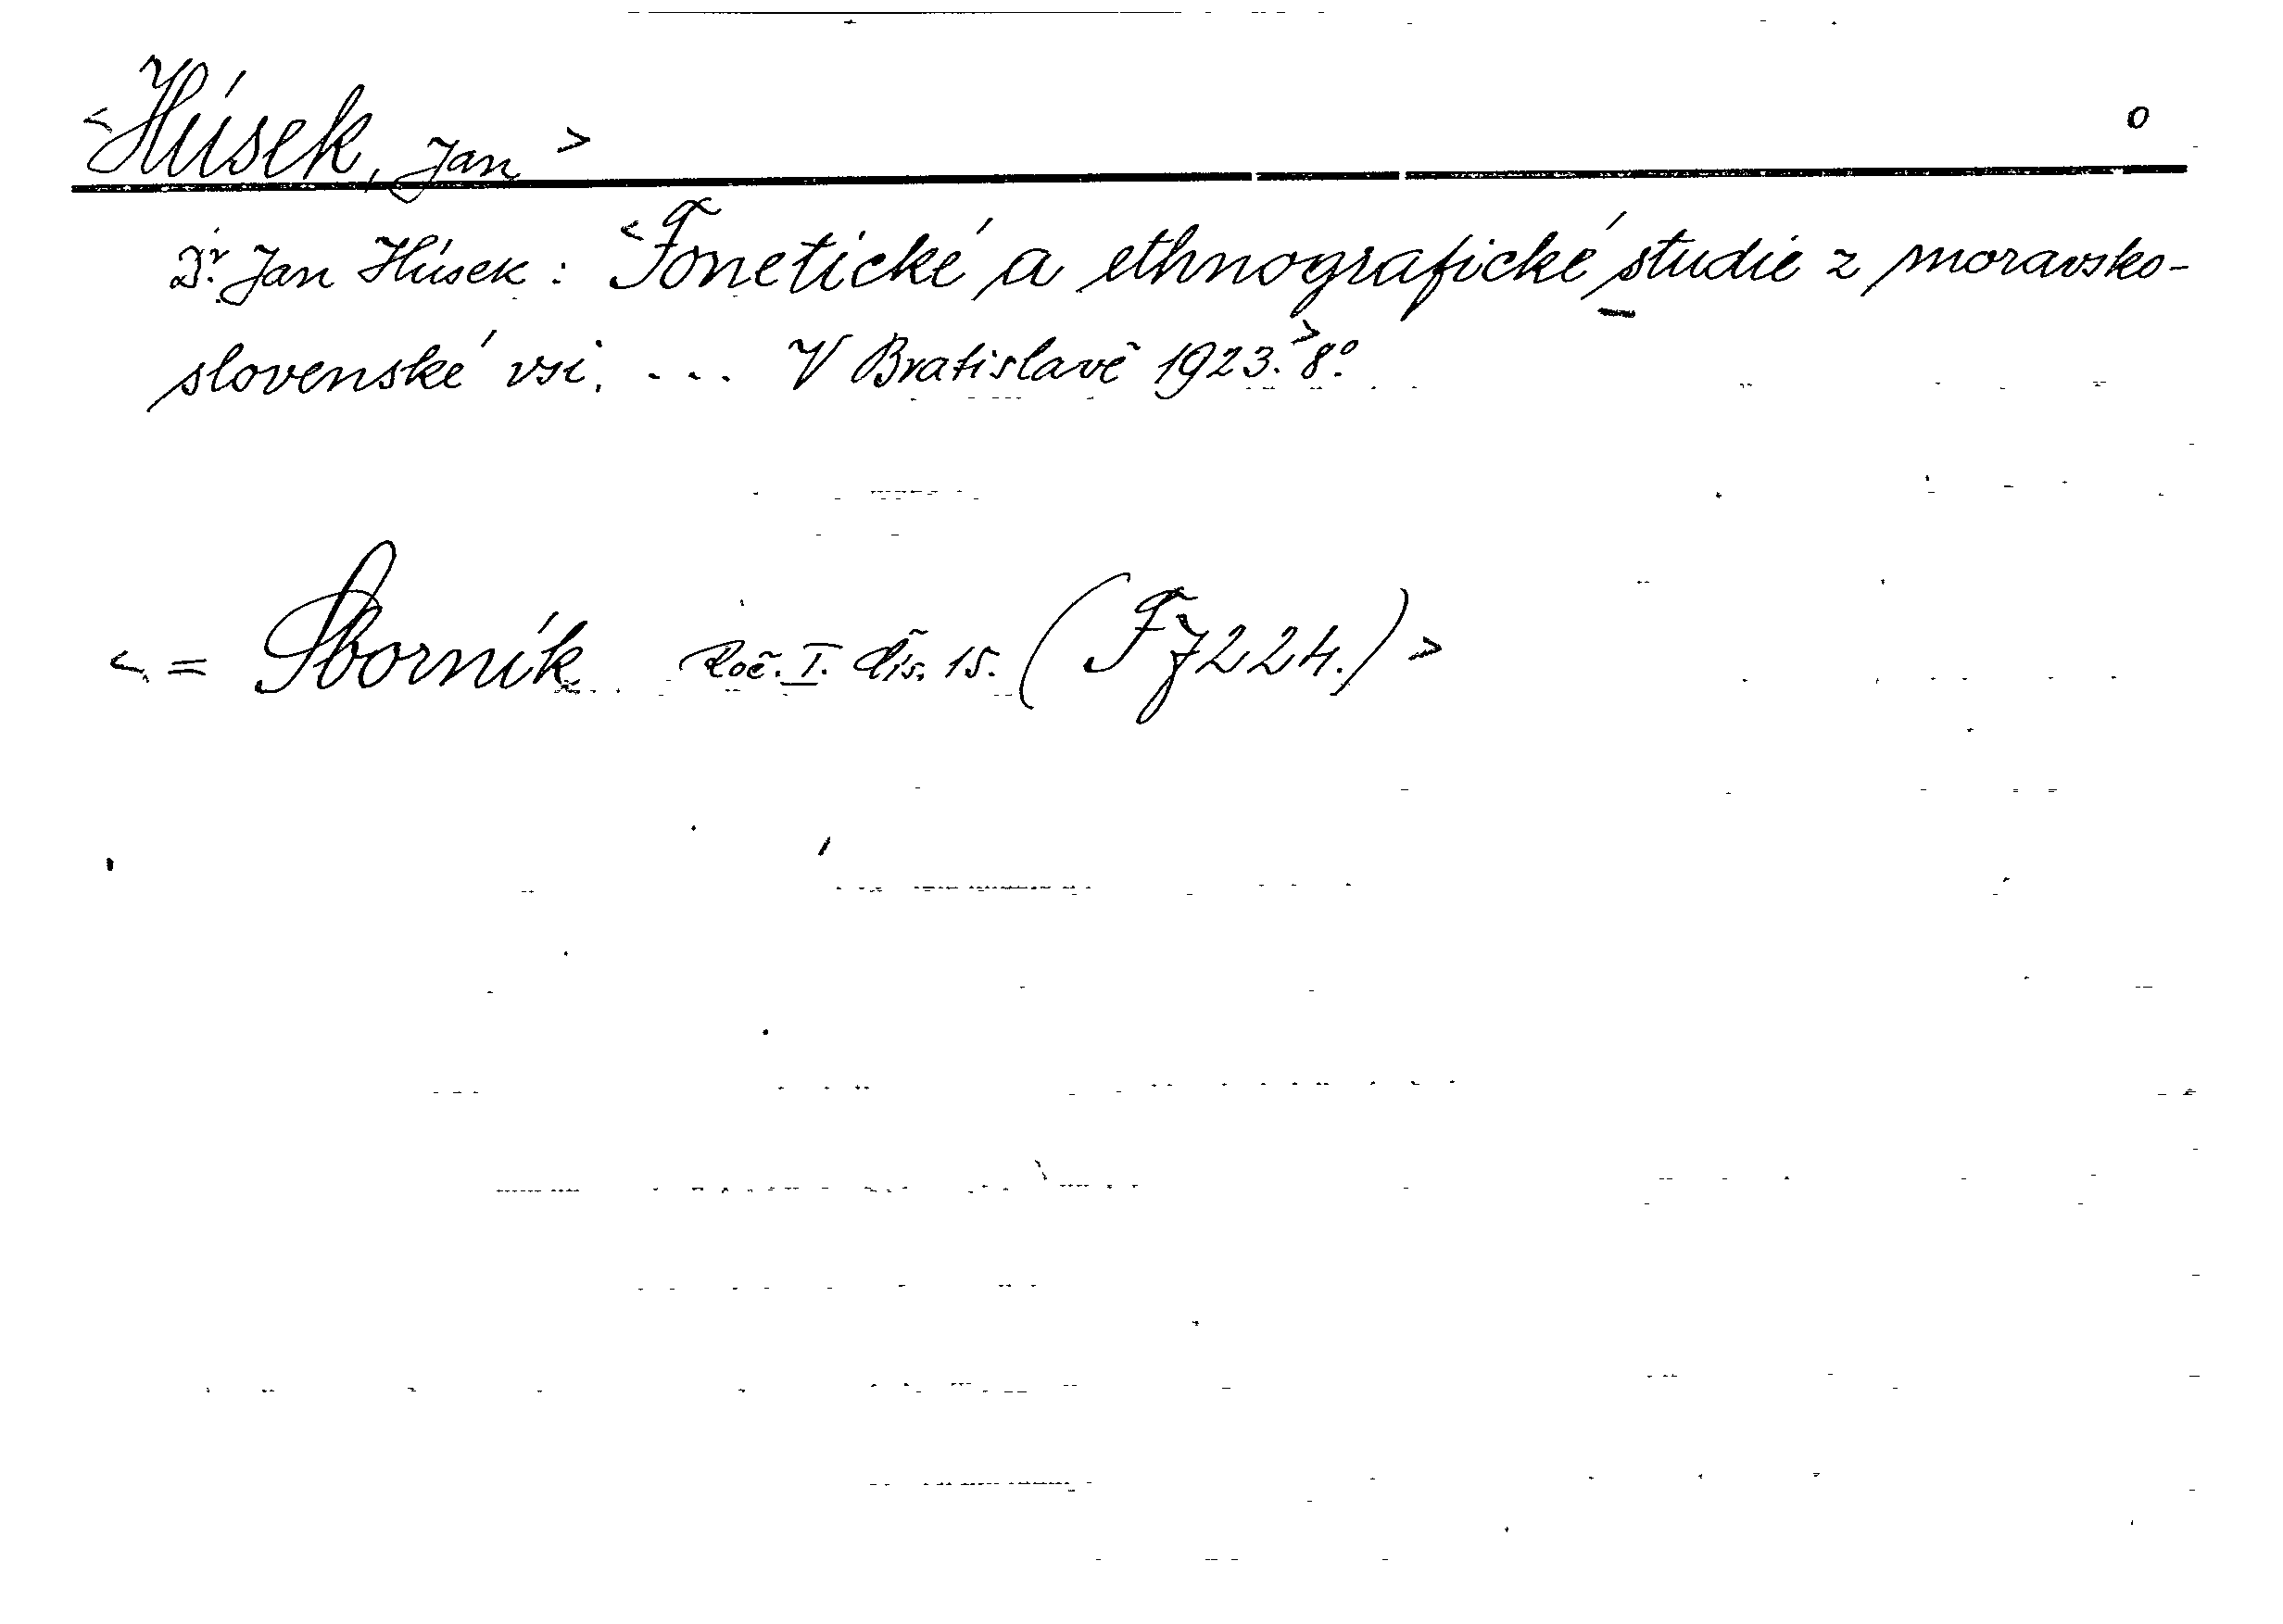 <Húsek, Jan> o
Dr. Jan Húsek: <Fonetické a ethnografické studie z moravsko-
slovenské vsi. ... V Bratislavě 1923.> 8°.
<= Sborník Roč. I. čís. 15. (F 7224.)>